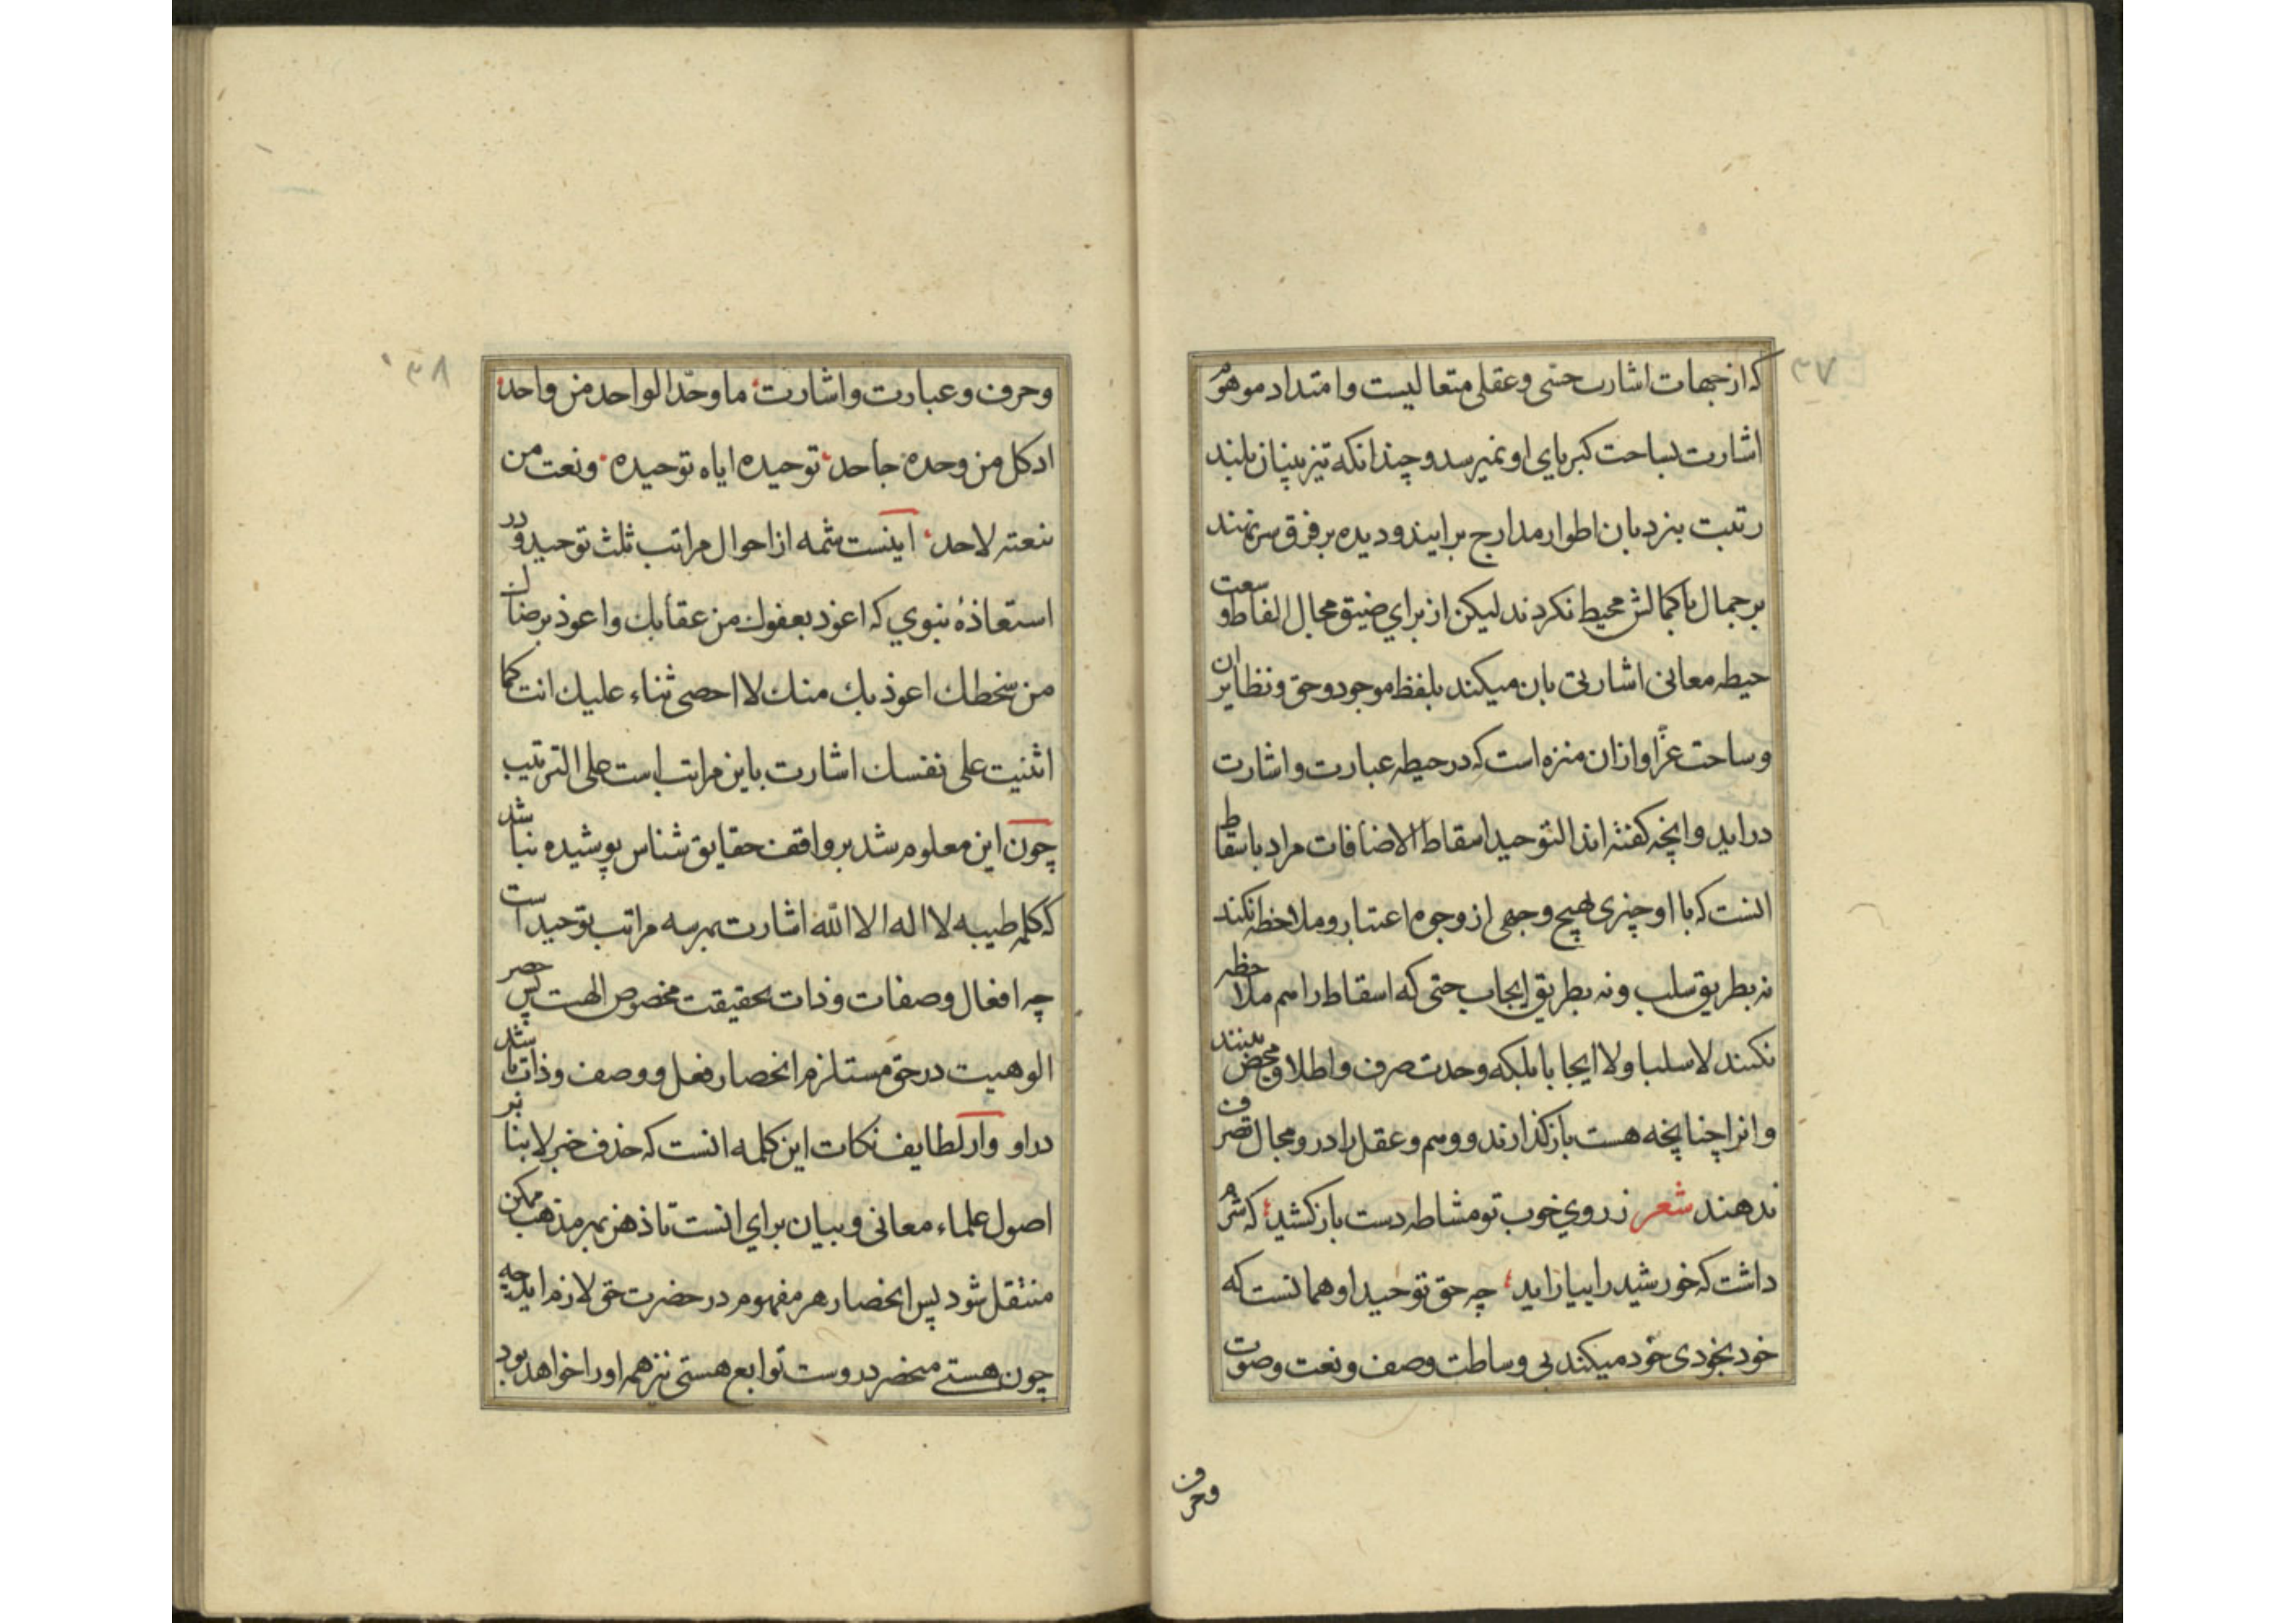 ٣٧
که از جهات اشارت حسی و عقلی متعالیست و امتداد موهوم
اشارت بساحت کبریای او نمیرسد و چندانکه تیزبینان بلند
رتبت بنردبان اطوار مدارج برایند و دیده بر فرق سر نهند
بر جمال با کمالش محیط نکردند لیکن از برای ضیق مجال الفاظ و سعت
حیطه معانی اشارتی بان میکند بلفظ موجود و حق و نظایر ان
و ساحت عز او ازان منزه است که در حیطه عبارت و اشارت
دراید و انچه کفته اند التوحید اسقاط الاضافات مراد باسقاط
انست که با او چیزی بهیچ وجهی از وجوه اعتبار و ملاحظه نکند
نه بطریق سلب و نه بطریق ایجاب حتی که اسقاط را هم ملاحظه
نکنند لا سلبا و لا ایجابا بلکه وحدت صرف و اطلاق محض بینند
و انرا چنانچه هست بازکذارند و وهم و عقل را در و مجال تصرف
ندهند شعر ز روی خوب تو مشاطه دست بازکشید که شرم
داشت که خورشید را بیاراید چه حق توحید او همانست که
خود بخودی خود میکند بی وساطت وصف و نعت و صوت
وحرف
٣٨
وحرف و عبارت و اشارت ما وحد الواحد من واحد
اد کل من وحده جاحد توحیده ایاه توحیده و نعت من
ینعته لاحد اینست شمه از احوال مراتب ثلث توحید و در
استعاذهٔ نبوی که اعوذ بعفوك من عقابك و اعوذ برضاك
من سخطك اعوذ بك منك لا احصی ثناء علیك انت کما
اثنیت علی نفسك اشارت باین مراتب است علی الترتیب
چون این معلوم شد بر واقف حقایق شناس پوشیده نباشد
که کلمه طیبه لا اله الا الله اشارت بهر سه مراتب توحید است
چه افعال و صفات و ذات بحقیقت مخصوص الهت پس حصر
الوهیت در حق مستلزم انحصار فعل و وصف و ذات باشد
در او و از لطایف نکات این کلمه انست که حذف خبر لا بنا بر
اصول علماء معانی و بیان برای انست تا ذهن بهر مذهب ممکن
منتقل شود پس انحصار هر مفهوم در حضرت حق لازم اید چه
چون هستی منحصر در وست توابع هستی نیز همه او را خواهد بود